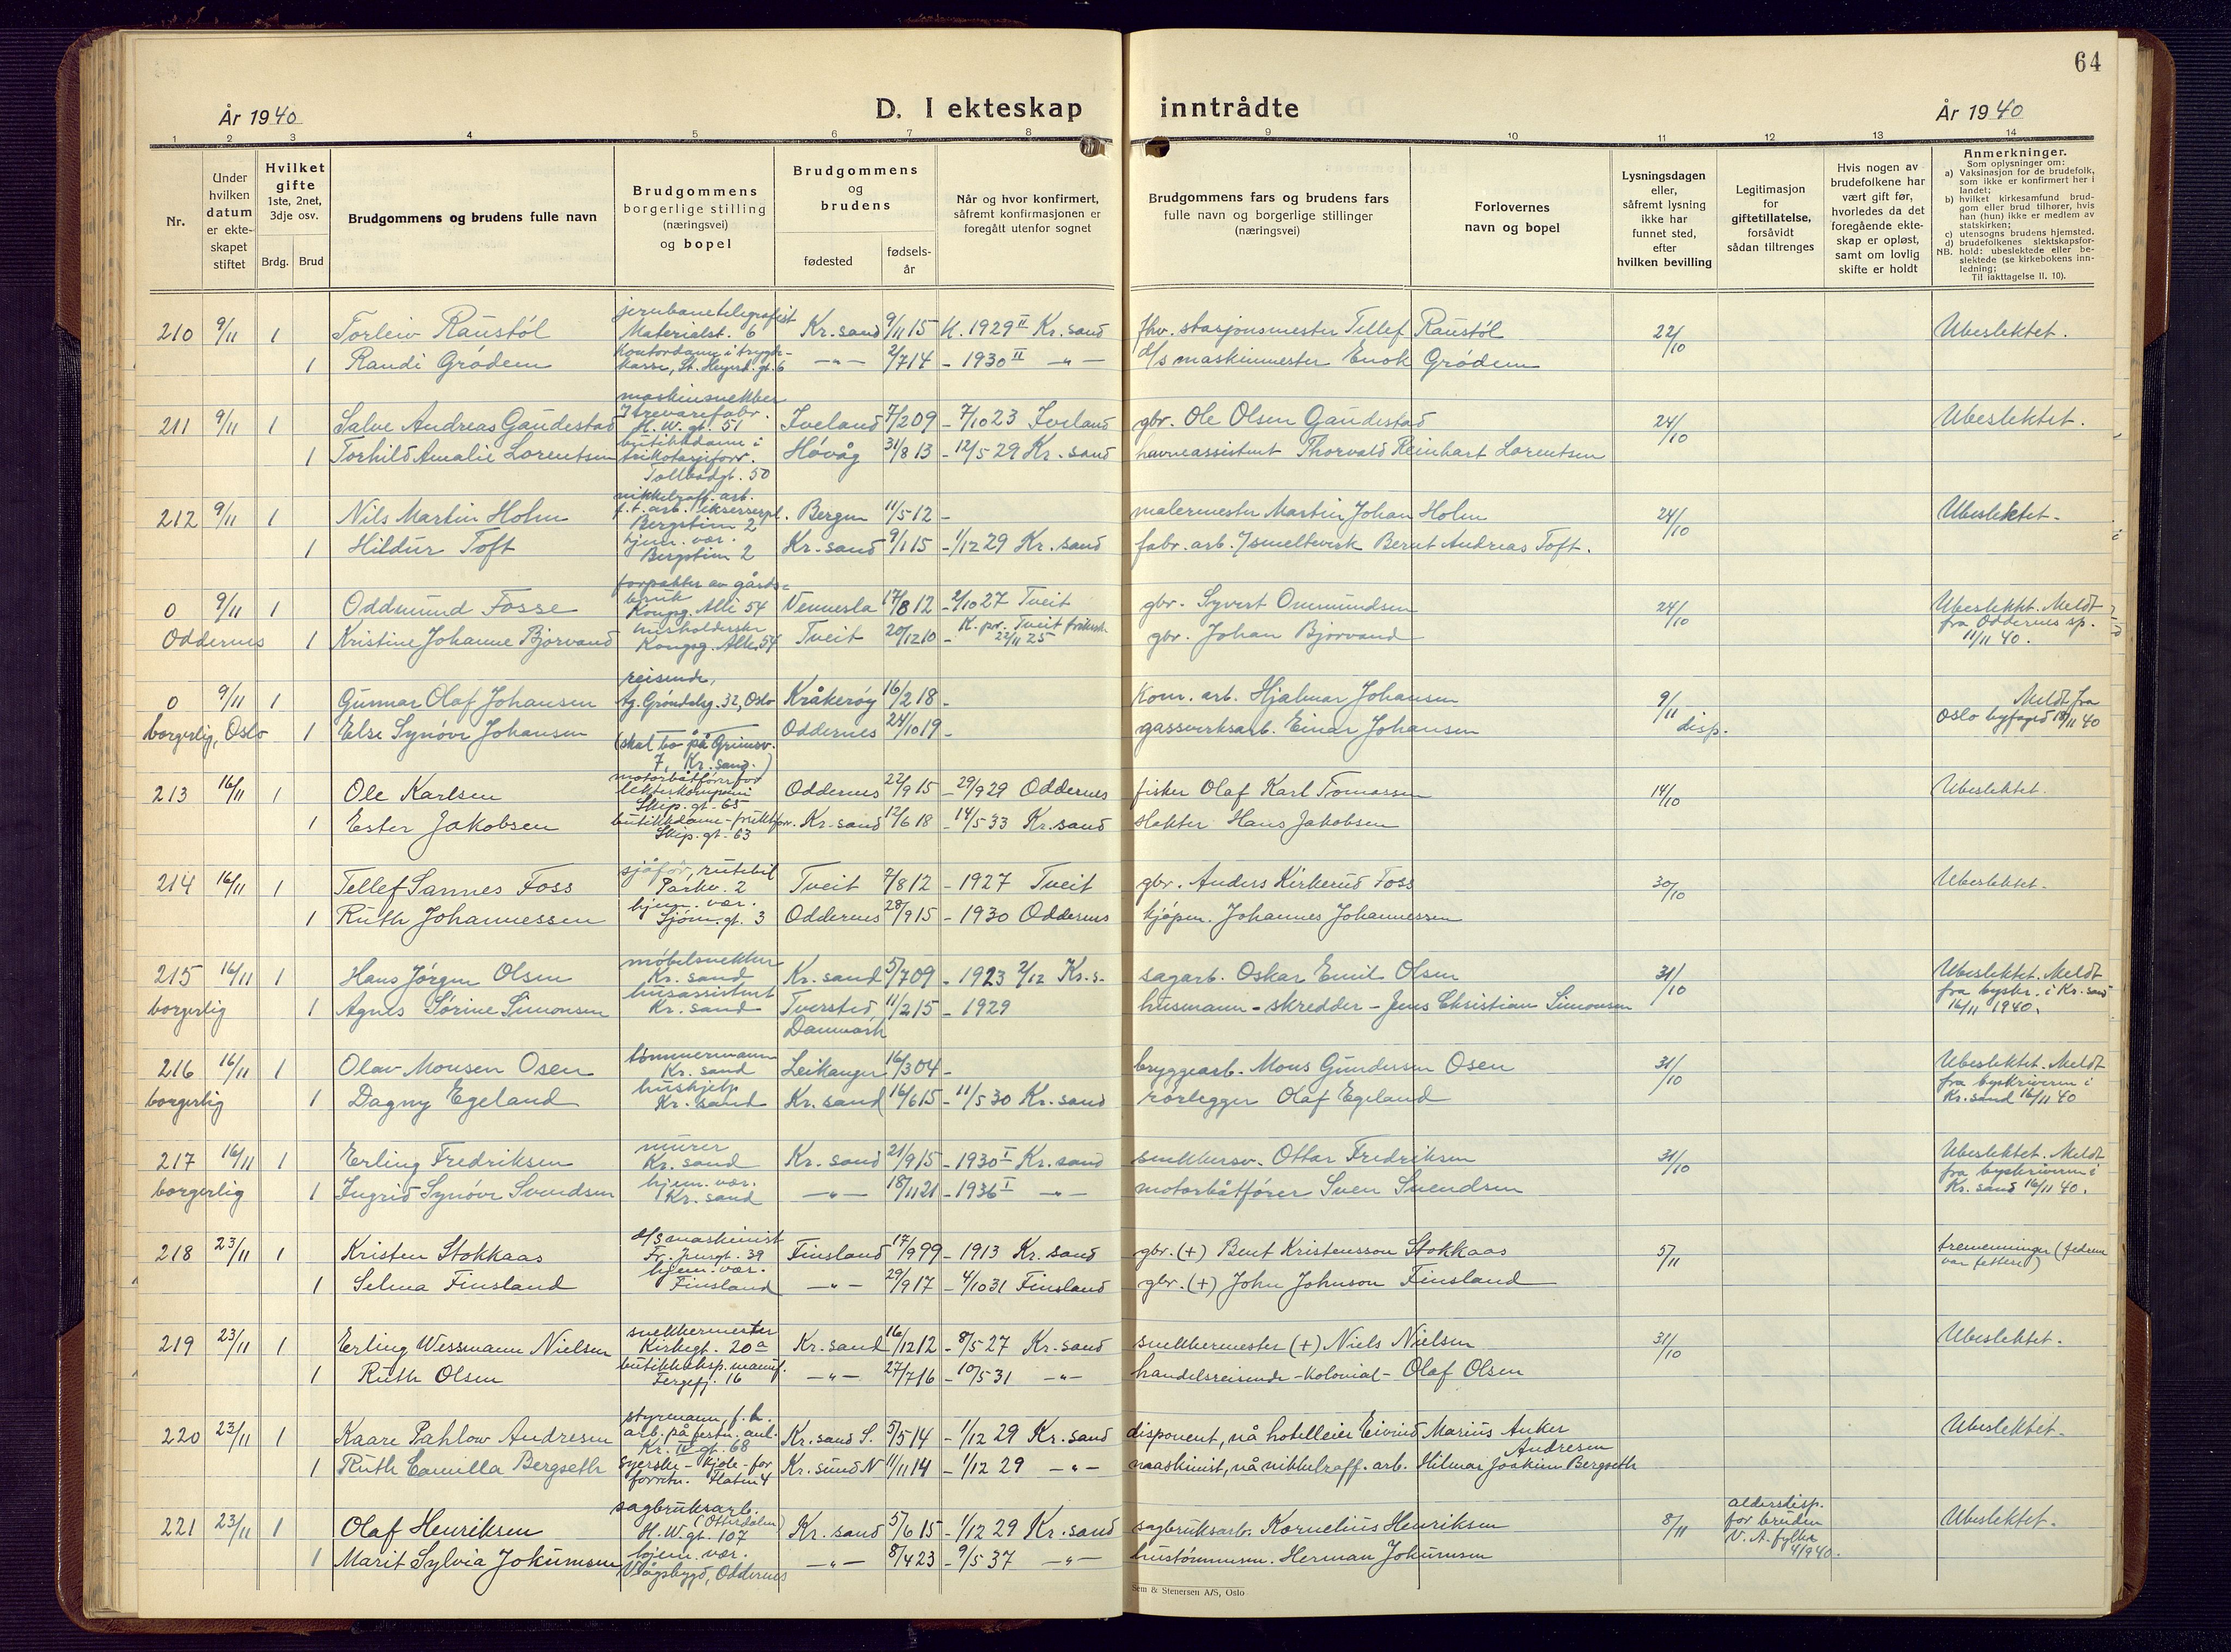 64
År 1940
D. I ekteskap inntrådte
År 1940
1 2 3 4 5 6 7 8 9 10 11 12 13 14
Nr.
Under hvilken datum er ekte- skapet stiftet
Hvilket gifte 1ste, 2net, 3dje osv.
Brdg. Brud
Brudgommens og brudens fulle navn
Brudgommens borgerlige stilling (næringsvei) og bopel
Brudgommens og brudens
fødested
fødsels- år
Når og hvor konfirmert, såfremt konfirmasjonen er foregått utenfor sognet
Brudgommens fars og brudens fars fulle navn og borgerlige stillinger (næringsvei)
Forlovernes navn og bopel
Lysningsdagen eller, såfremt lysning ikke har funnet sted, efter hvilken bevilling
Legitimasjon for giftetillatelse, forsåvidt sådan tiltrenges
Hvis nogen av brudefolkene har vært gift før, hvorledes da det foregående ekte- skap er opløst, samt om lovlig skifte er holdt
Anmerkninger.
Som oplysninger om:
a) Vaksinasjon for de brudefolk, som ikke er konfirmert her i landet;
b) hvilket kirkesamfund brud- gom eller brud tilhører, hvis han (hun) ikke er medlem av statskirken;
c) utensogns brudens hjemsted.
d) brudefolkenes slektskapsfor- hold: ubeslektede eller be- slektede (se kirkebokens inn- ledning;
NB.
Til iakttagelse II. 10).
210 9/11 1 Torleiv Raustøl jernbanetelegrafist Materialst. 6 Kr.sand 9/11 15 K. 1929 II Kr.sand fhv. stasjonsmester Tellef Raustøl 22/10 Ubeslektet.
1 Randi Grødem kontordame i trygde- kasse, St. Hegrd. gt. 6 —"— 2/7 14 - 1930 II —"— d/s maskinmester Enok Grødem
211 9/11 1 Salve Andreas Gaudestad maskinsnekker Trevarefabr. H.W. gt. 51 Iveland 7/2 09 - 7/10 23 Iveland gbr. Ole Olsen Gaudestad 24/10 Ubeslektet.
1 Torhild Amalie Lorentsen butikkdame i trikotasjeforr. Tollbodgt. 50 Høvåg 31/8 13 - 12/5 29 Kr.sand havneassistent Thorvald Reinhart Lorentsen
212 9/11 1 Nils Martin Holm nikkelraff. arb. f.t. arb. ekserserpl. Bergstien 2 Bergen 11/5 12 - malermester Martin Johan Holm 24/10 Ubeslektet.
1 Hildur Toft hjem. vær. Bergstien 2 Kr.sand 9/1 15 - 1/12 29 Kr.sand fabr. arb. Ismelteverk Bernt Andreas Toft.
0 9/11 1 Oddmund Fosse forpakter av gårds- bruk Kongsg. Allé 54 Vennesla 17/8 12 - 2/10 27 Tveit gbr. Syvert Ommundsen 24/10 Ubeslektet. Meldt fra Oddernes sp. 11/11 40.
Oddernes 1 Kristine Johanne Bjorvand husholderske Kongsg. Allé 54 Tveit 20/12 10 - K. pr. Tveit frikirk. 22/11 25 gbr. Johan Bjorvand
0 9/11 1 Gunnar Olaf Johansen reisende, Ag. Grøndalsg. 32, Oslo Kråkerøy 16/2 18 - kom. arb. Hjalmar Johansen 9/11 disp. Meldt fra Oslo byfoged 18/11 40
borgerlig, Oslo 1 Else Synøve Johansen (skal bo på Grimsv. 7, Kr.sand.) Oddernes 24/10 19 - gassverksarb. Einar Johansen
213 16/11 1 Ole Karlsen motorbåtfører lekterkompani Skip. gt. 65 Oddernes 22/9 15 - 29/9 29 Oddernes fisker Olaf Karl Tomassen 14/10 Ubeslektet.
1 Ester Jakobsen butikkdame-fruktforr. Skip. gt. 63 Kr.sand 12/6 18 - 14/5 33 Kr.sand slakter Hans Jakobsen
214 16/11 1 Tellef Sannes Foss sjåfør, rutebil Parkv. 2 Tveit 2/8 12 - 1927 Tveit gbr. Anders Kirkerud Foss 30/10 Ubeslektet.
1 Ruth Johannessen hjem. vær. Sjøm. gt. 3 Oddernes 28/9 15 - 1930 Oddernes kjøpm. Johannes Johannessen
215 16/11 1 Hans Jørgen Olsen møbelsnekker Kr.sand Kr.sand 5/7 09 - 1923 2/12 Kr.s. sagarb. Oskar Emil Olsen 31/10 Ubeslektet. Meldt fra byskr. i Kr.sand 16/11 1940.
borgerlig 1 Agnes Sørine Simonsen husassistent Kr.sand Tversted, Danmark 11/2 15 - 1929 husmann - skredder - Jens Christian Simonsen
216 16/11 1 Olav Monsen Osen tømmermann Kr.sand Leikanger 16/3 04 - bryggearb. Mons Gundersen Osen 31/10 Ubeslektet. Meldt fra byskriveren i Kr.sand 16/11 40
borgerlig 1 Dagny Egeland hushjelp Kr.sand Kr.sand 16/6 15 - 11/5 30 Kr.sand rørlegger Olaf Egeland
217 16/11 1 Erling Fredriksen murer Kr.sand Kr.sand 21/9 15 - 1930 I Kr.sand snekkersv. Ottar Fredriksen 31/10 Ubeslektet. Meldt fra byskriveren i Kr.sand 16/11 40.
borgerlig 1 Ingrid Synøve Svendsen hjem. vær. Kr.sand —"— 18/11 21 - 1936 I —"— motorbåtfører Sven Svendsen
218 23/11 1 Kristen Stokkaas d/s maskinist Fr. Fransgt. 39 Finsland 17/9 99 - 1913 Kr.sand gbr. (+) Bent Kristensson Stokkaas 5/11 tremenninger (fedrene var fettere)
1 Selma Finsland hjem. vær. Finsland —"— 29/9 17 - 4/10 31 Finsland gbr. (+) John Johnson Finsland
219 23/11 1 Erling Wessmann Nielsen snekkermester Kirkegt. 20a Kr.sand 16/12 12 - 8/5 27 Kr.sand snekkermester (+) Niels Nielsen 31/10 Ubeslektet.
1 Ruth Olsen butikkeksp. manuf. Tergefj. 16 —"— 27/7 16 - 10/5 31 —"— handelsreisende - kolonial - Olaf Olsen
220 23/11 1 Kaare Pahlow Andresen styrmann, f.t. arb. på festn. anl. Kr. IV gt. 68 Kr.sand S. 5/5 14 - 1/12 29 Kr.sand disponent, nå hotelleier Eivind Marius Anker Andresen Ubeslektet.
1 Ruth Camilla Bergseth syerske - kjole - for forretn. Flaten 4 Kr.sund N 11/11 14 - 1/12 29 —"— maskinist, nå nikkelraff. arb. Hilmar Joakim Bergseth
221 23/11 1 Olaf Henriksen sagbruksarb. (Otterdalen) H.W. gt. 107 Kr.sand 5/6 15 - 1/12 29 Kr.sand sagbruksarb. Kornelius Henriksen 8/11 aldersdisp. for bruden V.A. fylke 4/9 40. Ubeslektet.
1 Marit Sylvia Jokumsen hjem. vær. Vågsbygd, Oddernes —"— 8/4 23 - 9/5 37 —"— hustømmerm. Herman Jokumsen
Sem & Stenersen A/S, Oslo